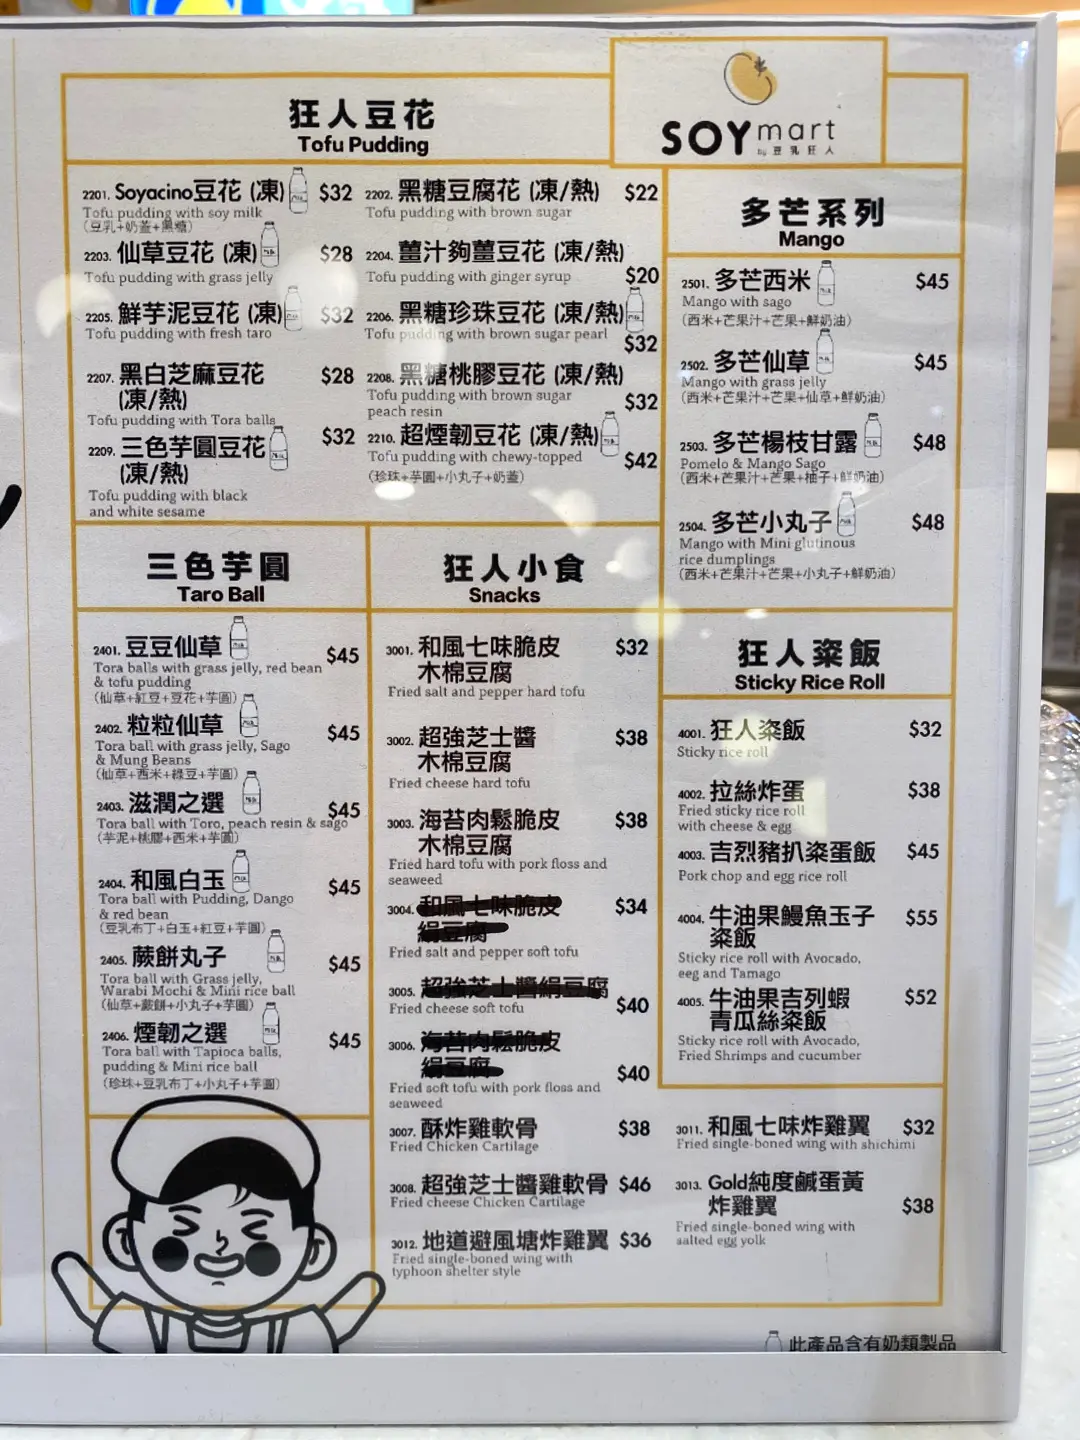 狂人豆花
Tofu Pudding
SOYmart
by 豆乳狂人
2201. Soyacino豆花 (凍) $32
Tofu pudding with soy milk
(豆乳+奶蓋+黑糖)
2202. 黑糖豆腐花 (凍/熱) $22
Tofu pudding with brown sugar
2203. 仙草豆花 (凍) $28
Tofu pudding with grass jelly
2204. 薑汁夠薑豆花 (凍/熱)
Tofu pudding with ginger syrup $20
2205. 鮮芋泥豆花 (凍) $32
Tofu pudding with fresh taro
2206. 黑糖珍珠豆花 (凍/熱)
Tofu pudding with brown sugar pearl
$32
2207. 黑白芝麻豆花 $28
(凍/熱)
Tofu pudding with Tora balls
2208. 黑糖桃膠豆花 (凍/熱)
Tofu pudding with brown sugar
peach resin $32
2209. 三色芋圓豆花 $32
(凍/熱)
Tofu pudding with black
and white sesame
2210. 超煙韌豆花 (凍/熱)
Tofu pudding with chewy-topped $42
(珍珠+芋圓+小丸子+奶蓋)
多芒系列
Mango
2501. 多芒西米 $45
Mango with sago
(西米+芒果汁+芒果+鮮奶油)
2502. 多芒仙草 $45
Mango with grass jelly
(西米+芒果汁+芒果+仙草+鮮奶油)
2503. 多芒楊枝甘露 $48
Pomelo & Mango Sago
(西米+芒果汁+芒果+柚子+鮮奶油)
2504. 多芒小丸子 $48
Mango with Mini glutinous
rice dumplings
(西米+芒果汁+芒果+小丸子+鮮奶油)
三色芋圓
Taro Ball
2401. 豆豆仙草 $45
Tora balls with grass jelly, red bean
& tofu pudding
(仙草+紅豆+豆花+芋圓)
2402. 粒粒仙草 $45
Tora ball with grass jelly, Sago
& Mung Beans
(仙草+西米+綠豆+芋圓)
2403. 滋潤之選 $45
Tora ball with Toro, peach resin & sago
(芋泥+桃膠+西米+芋圓)
2404. 和風白玉 $45
Tora ball with Pudding, Dango
& red bean
(豆乳布丁+白玉+紅豆+芋圓)
2405. 蕨餅丸子 $45
Tora ball with Grass jelly,
Warabi Mochi & Mini rice ball
(仙草+蕨餅+小丸子+芋圓)
2406. 煙韌之選 $45
Tora ball with Tapioca balls,
pudding & Mini rice ball
(珍珠+豆乳布丁+小丸子+芋圓)
狂人小食
Snacks
3001. 和風七味脆皮 $32
木棉豆腐
Fried salt and pepper hard tofu
3002. 超強芝士醬 $38
木棉豆腐
Fried cheese hard tofu
3003. 海苔肉鬆脆皮 $38
木棉豆腐
Fried hard tofu with pork floss and
seaweed
3004. 和風七味脆皮 $34
絹豆腐
Fried salt and pepper soft tofu
3005. 超強芝士醬絹豆腐
Fried cheese soft tofu $40
3006. 海苔肉鬆脆皮
絹豆腐 $40
Fried soft tofu with pork floss and
seaweed
3007. 酥炸雞軟骨 $38
Fried Chicken Cartilage
3008. 超強芝士醬雞軟骨 $46
Fried cheese Chicken Cartilage
3012. 地道避風塘炸雞翼 $36
Fried single-boned wing with
typhoon shelter style
狂人粢飯
Sticky Rice Roll
4001. 狂人粢飯 $32
Sticky rice roll
4002. 拉絲炸蛋 $38
Fried sticky rice roll
with cheese & egg
4003. 吉烈豬扒粢蛋飯 $45
Pork chop and egg rice roll
4004. 牛油果鰻魚玉子 $55
粢飯
Sticky rice roll with Avocado,
eeg and Tamago
4005. 牛油果吉列蝦 $52
青瓜絲粢飯
Sticky rice roll with Avocado,
Fried Shrimps and cucumber
3011. 和風七味炸雞翼 $32
Fried single-boned wing with shichimi
3013. Gold純度鹹蛋黃
炸雞翼 $38
Fried single-boned wing with
salted egg yolk
此產品含有奶類製品